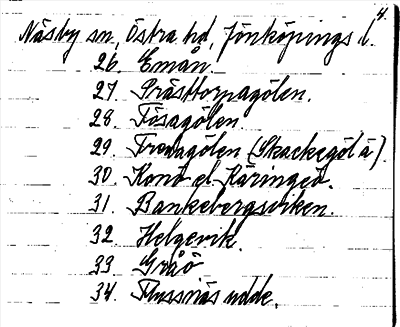 4.
Näsby sn, Östra hd, Jönköpings l.
26. Emån.
27. Prästtorpagölen.
28. Fösagölen.
29. Fredagölen (Skackegöl ä).
30. Konö el. Käringeö.
31. Bankebergsviken.
32. Helgevik.
33. Gråö
34. Flussnäs udde.